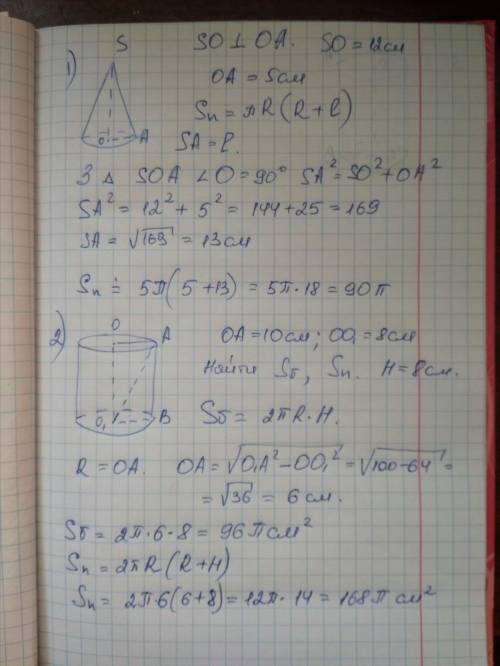 SO ⊥ OA. SO = 12 см
1)
S
OA = 5 см
Sп = πR(R + ℓ)
O A
SA = ℓ.
З Δ SOA ∠O = 90° SA² = SO² + OA²
SA² = 12² + 5² = 144 + 25 = 169
SA = √169 = 13 см
Sп = 5π(5 + 13) = 5π · 18 = 90π
2)
O A
OA = 10 см ; OO₁ = 8 см
Найти Sб, Sп. H = 8 см.
O₁ B
Sб = 2πR · H.
R = OA. OA = √O₁A² − OO₁² = √100 − 64 =
= √36 = 6 см.
Sб = 2π · 6 · 8 = 96π см²
Sп = 2πR(R + H)
Sп = 2π · 6(6 + 8) = 12π · 14 = 168π см²